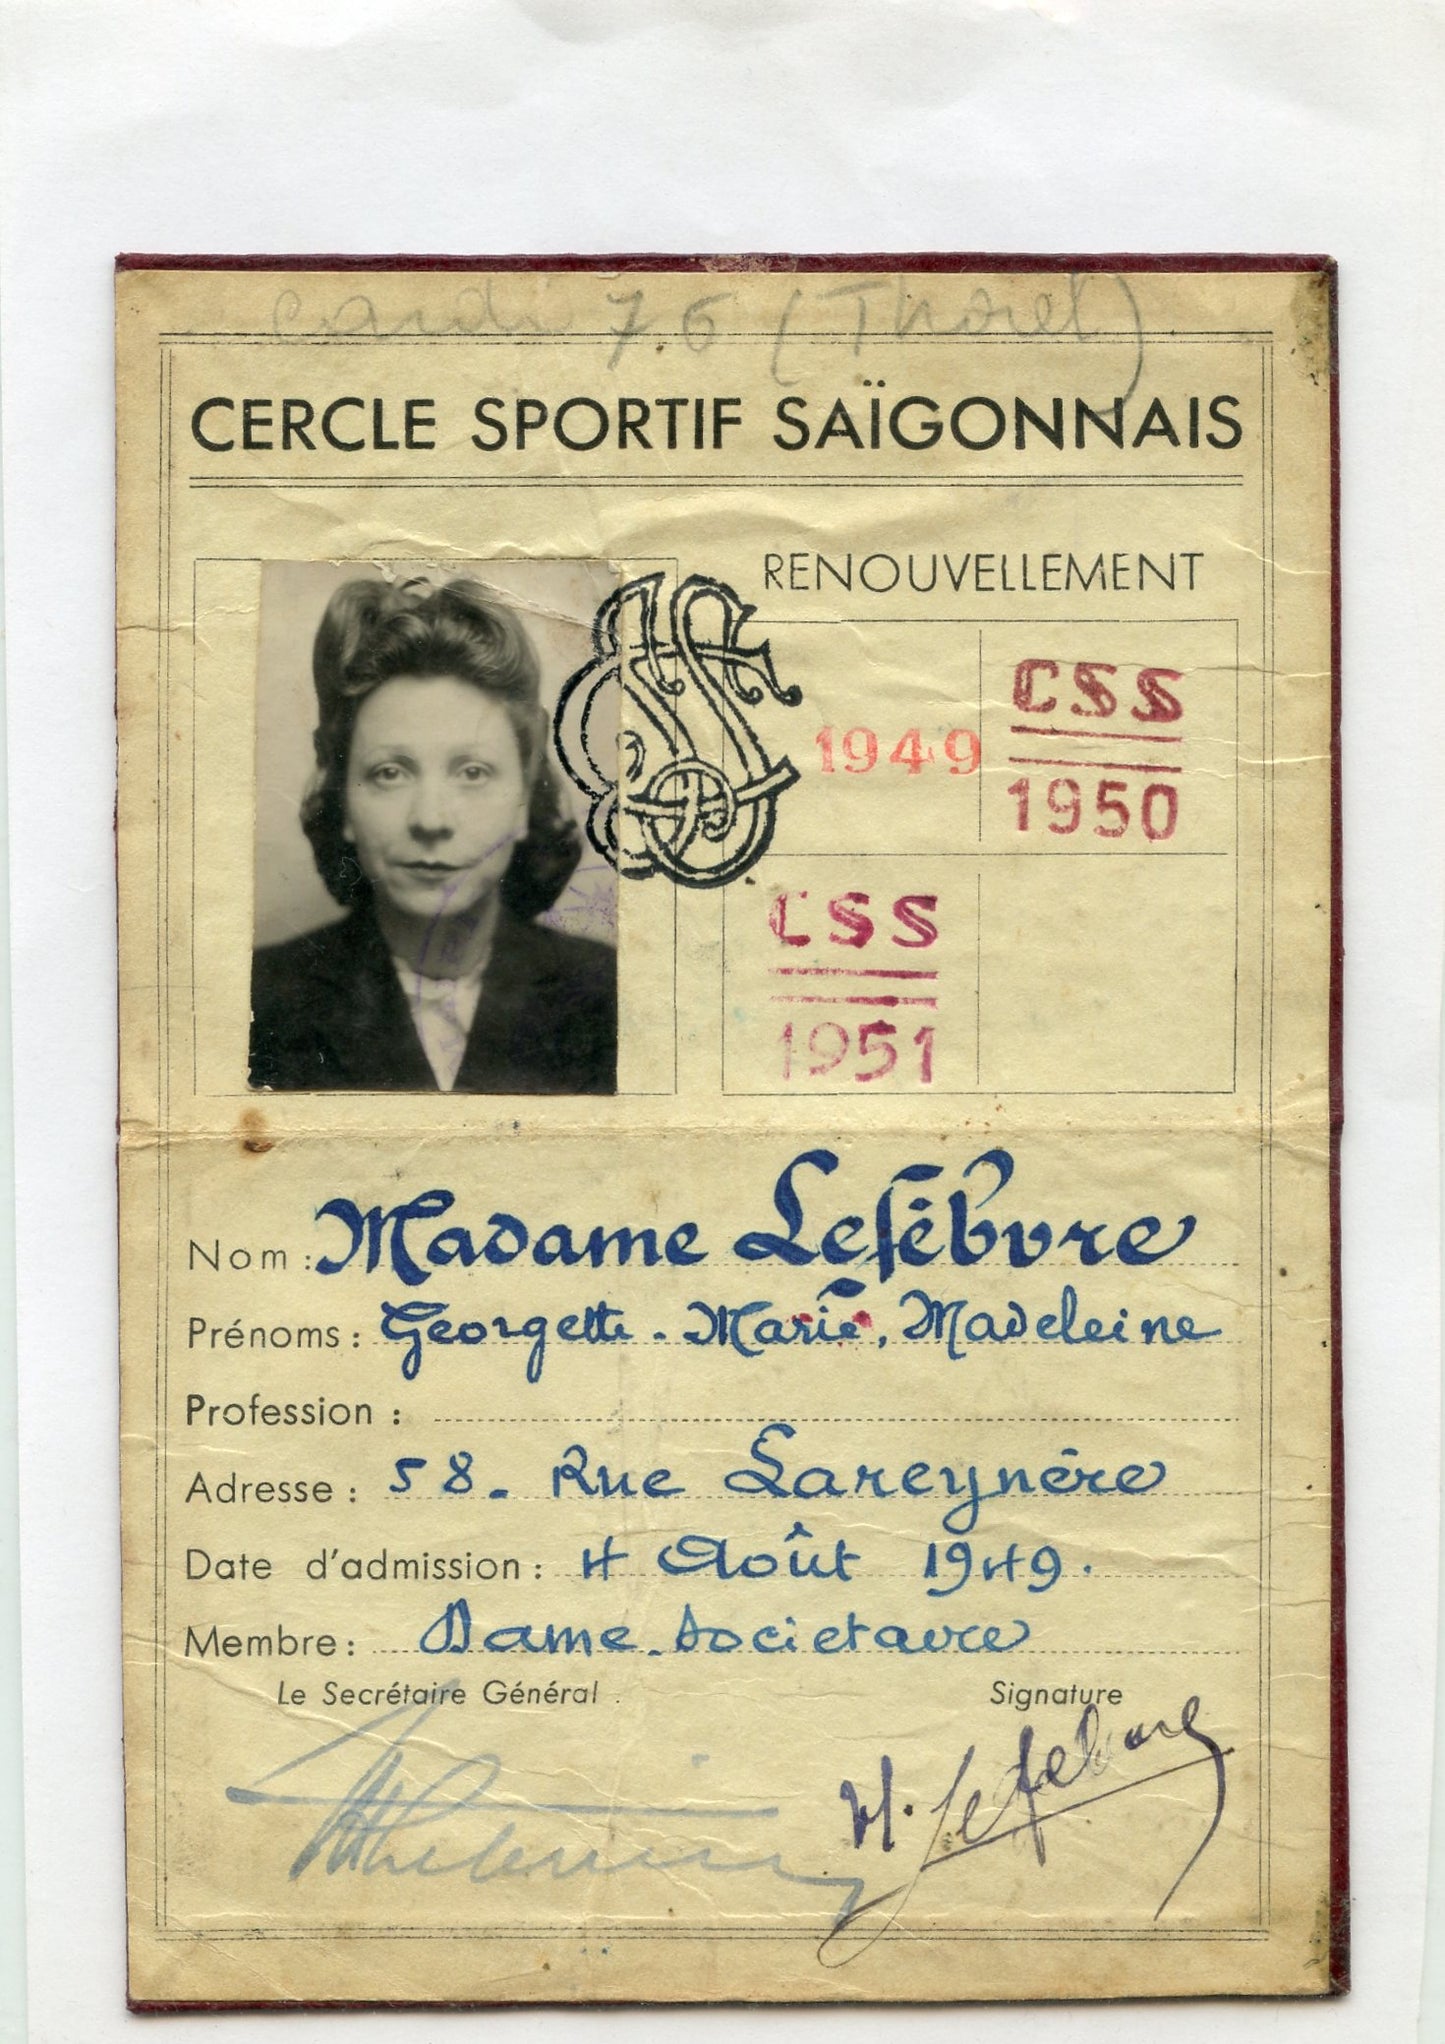 76 (Thorel)
CERCLE SPORTIF SAÏGONNAIS
RENOUVELLEMENT
1949
CSS
1950
CSS
1951
Nom : Madame Lefèbvre
Prénoms : Georgette - Marie, Madeleine
Profession :
Adresse : 58. Rue Lareynère
Date d'admission : 4 Août 1949.
Membre : Dame. Societaire
Le Secrétaire Général
Signature
Lefebvre